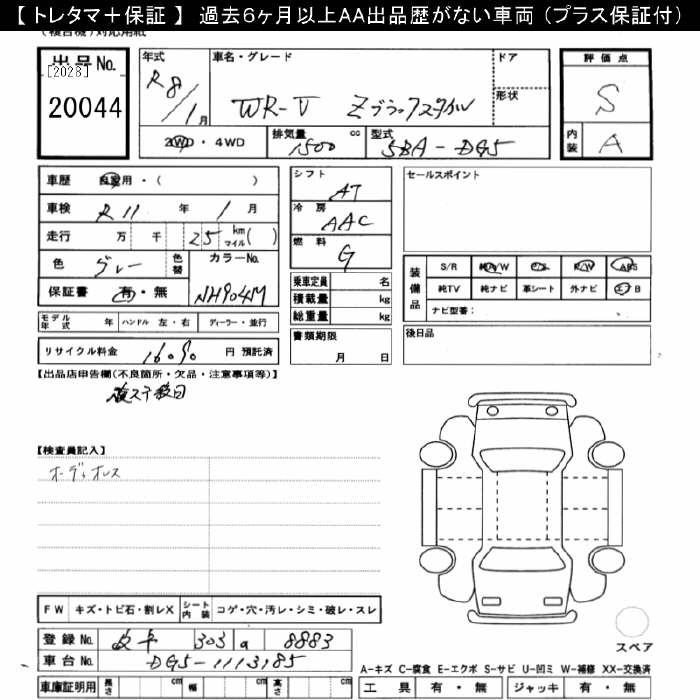 【 トレタマ＋保証 】 過去６ヶ月以上ＡＡ出品歴がない車両（プラス保証付）
出品No.
[2028]
20044
年式
R8/1月
車名・グレード
WR-V Zブラックスタイル
ドア
形状
2WD・4WD
排気量
1500 cc
型式
5BA-DG5
評価点
S
内装
A
車歴 自家用・( )
車検 R11 年 1 月
走行 万 千 25 km マイル ( )
色 グレー
色替
カラーNo.
NH904M
保証書 有・無
モデル年式 年 ハンドル 左・右 ディーラー・並行
リサイクル料金 16090 円 預託済
シフト AT
冷房 AAC
燃料 G
乗車定員 名
積載量 kg
総重量 kg
書類期限
月 日
セールスポイント
装備品
S/R 純A/W P/S P/W ABS
純TV 純ナビ 革シート 外ナビ エアB
ナビ型番：
後日品
【出品店申告欄(不良箇所・欠品・注意事項等)】
【検査員記入】
オーディオレス
FW キズ・トビ石・割レX
シート内装 コゲ・穴・汚レ・シミ・破レ・スレ
登録No. 303 8883
車台No. DG5-1113185
車庫証明用 長さ cm 幅 cm 高さ cm
スペア
A-キズ C-腐食 E-エクボ S-サビ U-凹ミ W-補修 XX-交換済
工具 有・無 ジャッキ 有・無